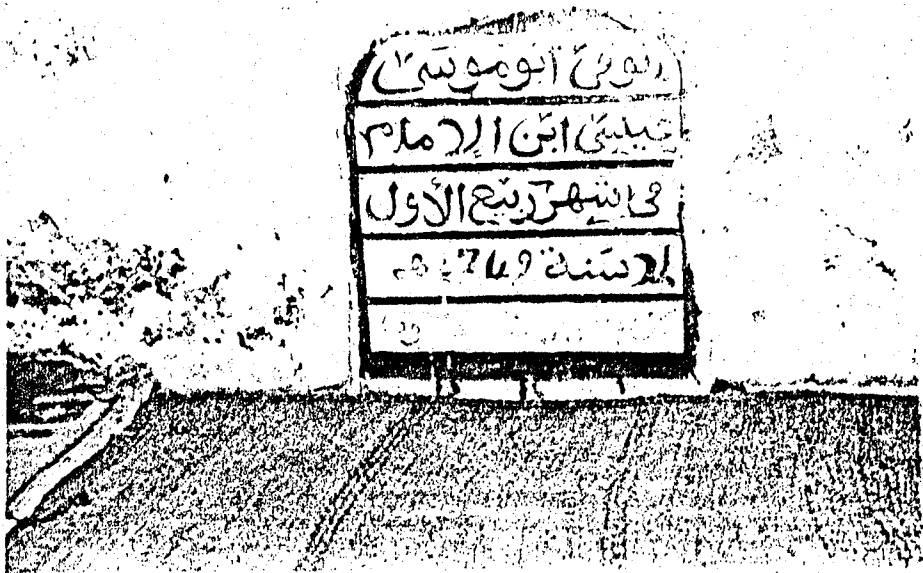 توفي أبو موسى
عيسى ابن الإمام
في شهر ربيع الأول
سنة 749 هـ